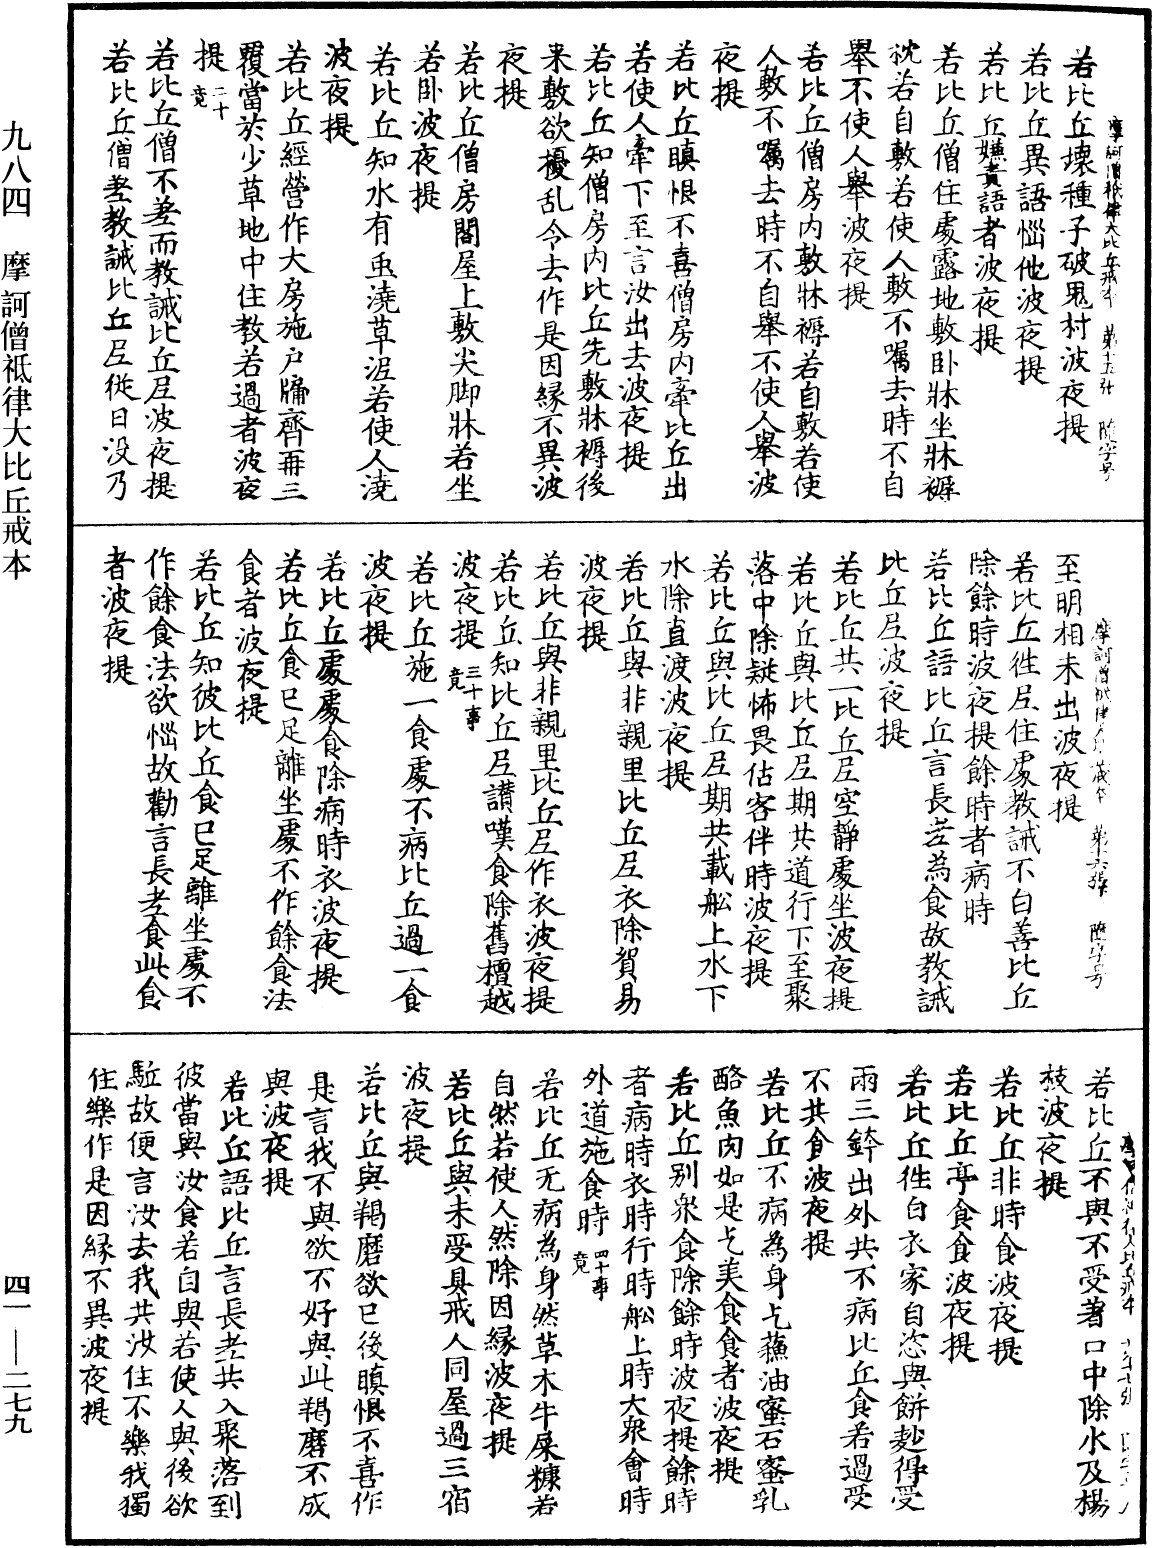 九八四　摩訶僧祇律大比丘戒本
四一—二七九
摩訶僧祇律大比丘戒本　第十五张　隨字号
若比丘壞種子破鬼村波夜提
若比丘異語惱他波夜提
若比丘嫌責語者波夜提
若比丘僧住處露地敷卧牀坐牀褥
枕若自敷若使人敷不囑去時不自
舉不使人舉波夜提
若比丘僧房内敷牀褥若自敷若使
人敷不囑去時不自舉不使人舉波
夜提
若比丘瞋恨不喜僧房内牽比丘出
若使人牽下至言汝出去波夜提
若比丘知僧房内比丘先敷牀褥後
来敷欲擾乱令去作是因緣不異波
夜提
若比丘僧房閣屋上敷尖脚牀若坐
若卧波夜提
若比丘知水有虫澆草泥若使人澆
波夜提
若比丘經營作大房施户牖齊再三
覆當於少草地中住教若過者波夜
提二十竟
若比丘僧不差而教誡比丘尼波夜提
若比丘僧差教誡比丘尼從日没乃
至明相未出波夜提
若比丘徃尼住處教誡不白善比丘
除餘時波夜提餘時者病時
若比丘語比丘言長老為食故教誡
比丘尼波夜提
若比丘共一比丘尼空靜處坐波夜提
若比丘與比丘尼期共道行下至聚
落中除疑怖畏估客伴時波夜提
若比丘與比丘尼期共載舩上水下
水除直渡波夜提
若比丘與非親里比丘尼衣除貿易
波夜提
若比丘與非親里比丘尼作衣波夜提
若比丘知比丘尼讃嘆食除舊檀越
波夜提三十事竟
若比丘施一食處不病比丘過一食
波夜提
若比丘處處食除病時衣波夜提
若比丘食已足離坐處不作餘食法
食者波夜提
若比丘知彼比丘食已足離坐處不
作餘食法欲惱故勸言長老食此食
者波夜提
若比丘不與不受著口中除水及楊
枝波夜提
若比丘非時食波夜提
若比丘亭食食波夜提
若比丘徃白衣家自恣與餅麨得受
兩三鉢出外共不病比丘食若過受
不共食波夜提
若比丘不病為身乞蘓油蜜石蜜乳
酪魚肉如是乞美食食者波夜提
若比丘别衆食除餘時波夜提餘時
者病時衣時行時舩上時大衆會時
外道施食時四十事竟
若比丘无病為身然草木牛屎糠若
自然若使人然除因緣波夜提
若比丘與未受具戒人同屋過三宿
波夜提
若比丘與羯磨欲已後瞋恨不喜作
是言我不與欲不好與此羯磨不成
與波夜提
若比丘語比丘言長老共入聚落到
彼當與汝食若自與若使人與後欲
駈故便言汝去我共汝住不樂我獨
住樂作是因緣不異波夜提